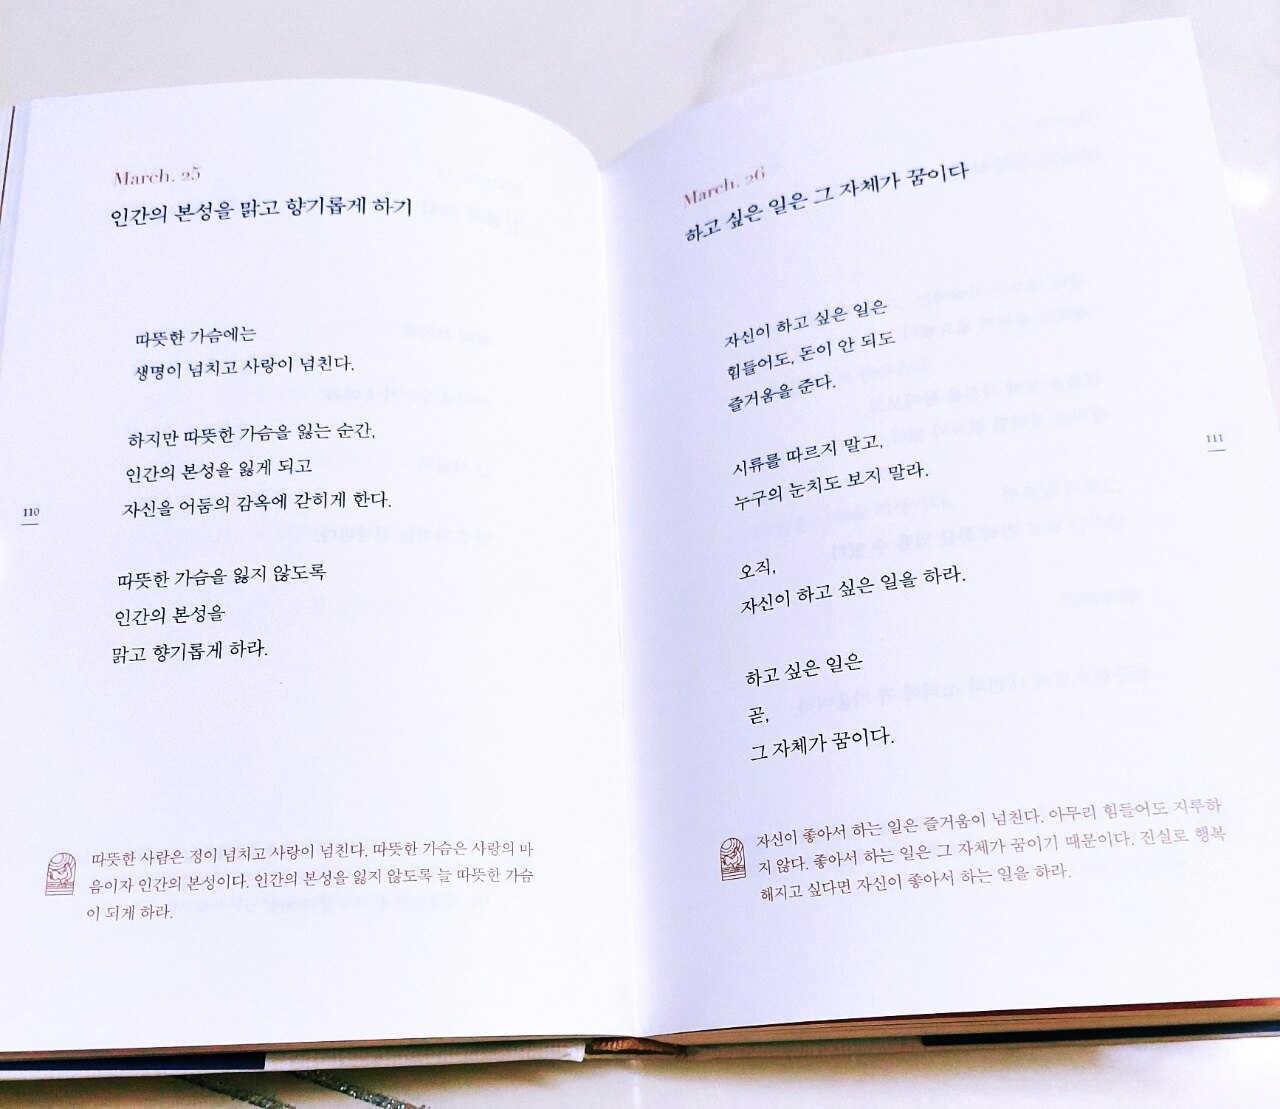 March. 25
인간의 본성을 맑고 향기롭게 하기
따뜻한 가슴에는
생명이 넘치고 사랑이 넘친다.
하지만 따뜻한 가슴을 잃는 순간,
인간의 본성을 잃게 되고
자신을 어둠의 감옥에 갇히게 한다.
따뜻한 가슴을 잃지 않도록
인간의 본성을
맑고 향기롭게 하라.
따뜻한 사람은 정이 넘치고 사랑이 넘친다. 따뜻한 가슴은 사랑의 마
음이자 인간의 본성이다. 인간의 본성을 잃지 않도록 늘 따뜻한 가슴
이 되게 하라.
110
March. 26
하고 싶은 일은 그 자체가 꿈이다
자신이 하고 싶은 일은
힘들어도, 돈이 안 되도
즐거움을 준다.
시류를 따르지 말고,
누구의 눈치도 보지 말라.
오직,
자신이 하고 싶은 일을 하라.
하고 싶은 일은
곧,
그 자체가 꿈이다.
자신이 좋아서 하는 일은 즐거움이 넘친다. 아무리 힘들어도 지루하
지 않다. 좋아서 하는 일은 그 자체가 꿈이기 때문이다. 진실로 행복
해지고 싶다면 자신이 좋아서 하는 일을 하라.
111